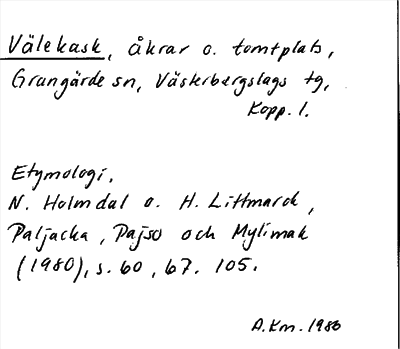 Välekask, åkrar o. tomtplats,
Grangärde sn, Västerbergslags tg,
Kopp. l.
Etymologi.
N. Holmdal o. H. Littmarck,
Paljacka, Pajso och Mylimak
(1980), s. 60, 67. 105.
A.Km. 1980